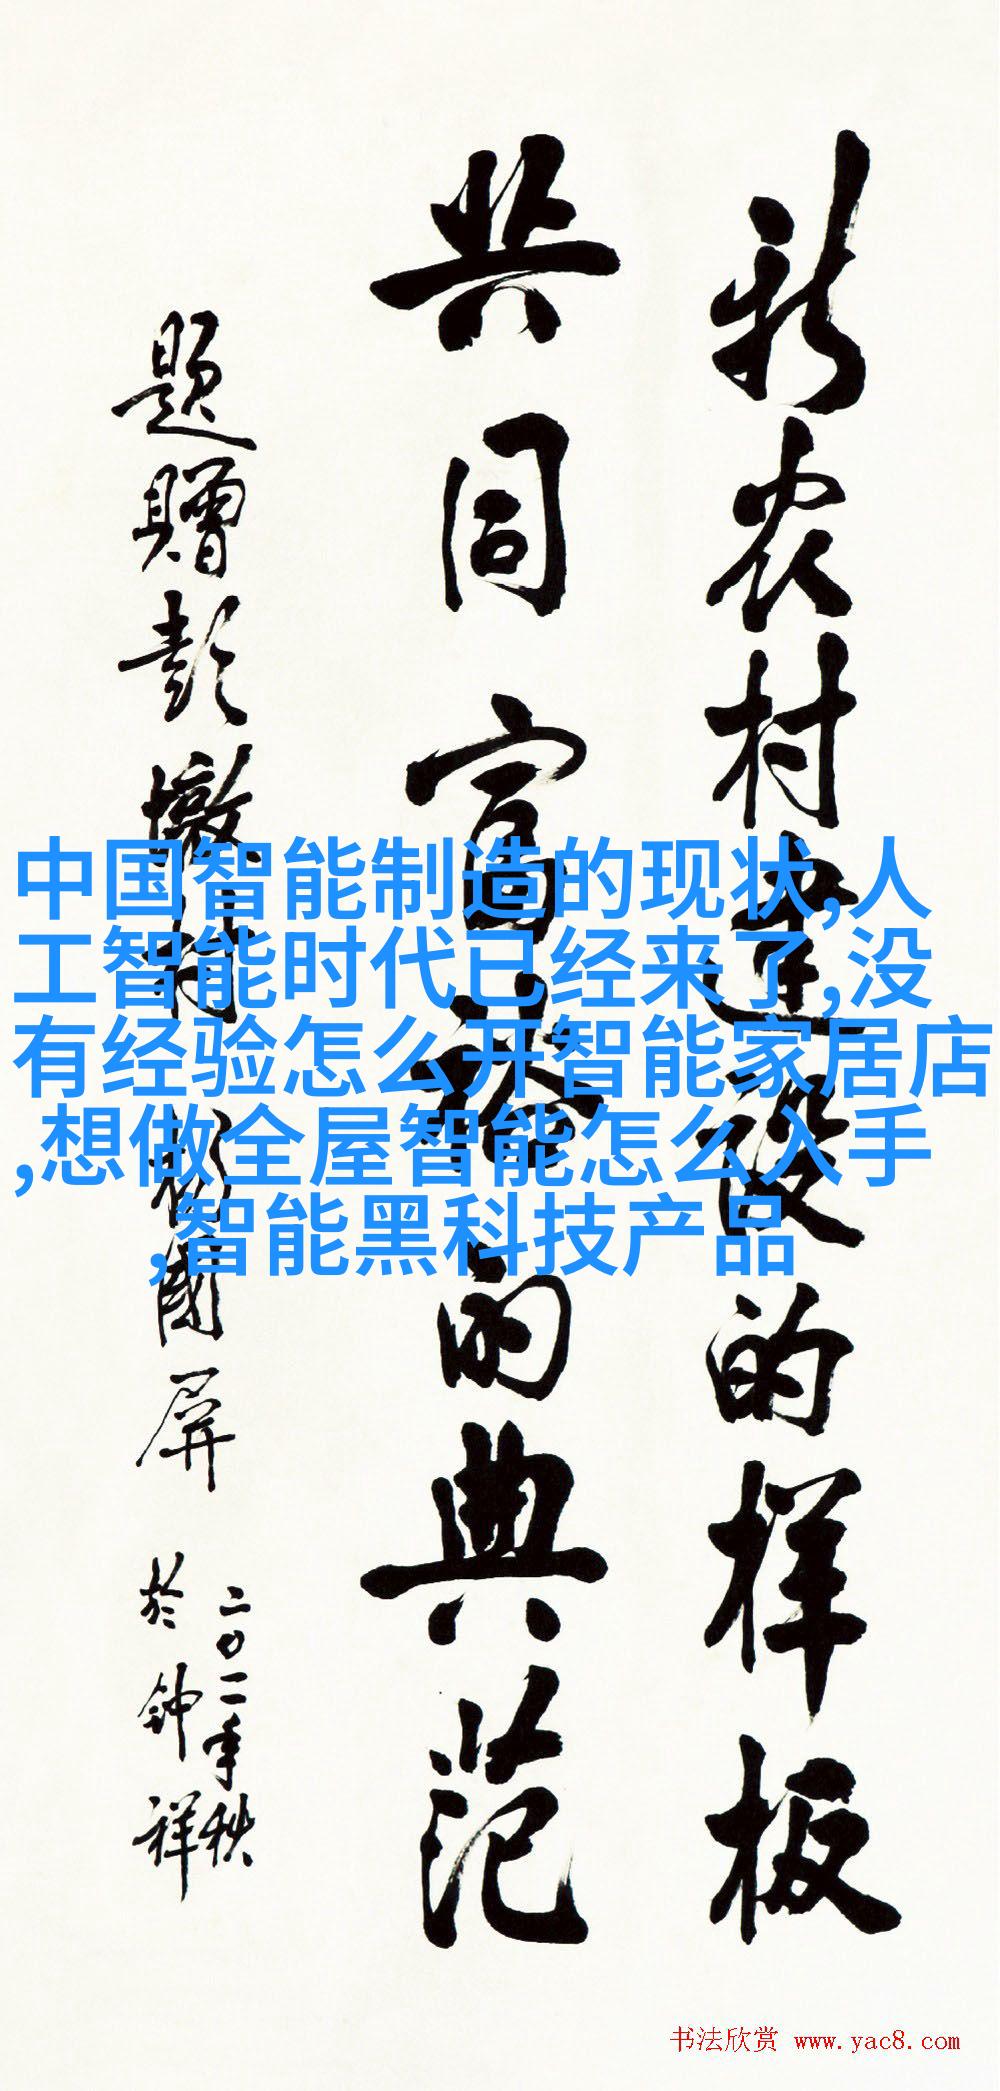 新农村建设的样板
共同富裕的典范
题贈彭墩村
國屏
二〇一一年秋
於钟祥
中国智能制造的现状,人
工智能时代已经来了,没
有经验怎么开智能家居店
,想做全屋智能怎么入手
,智能黑科技产品
书法欣赏 www.yac8.com